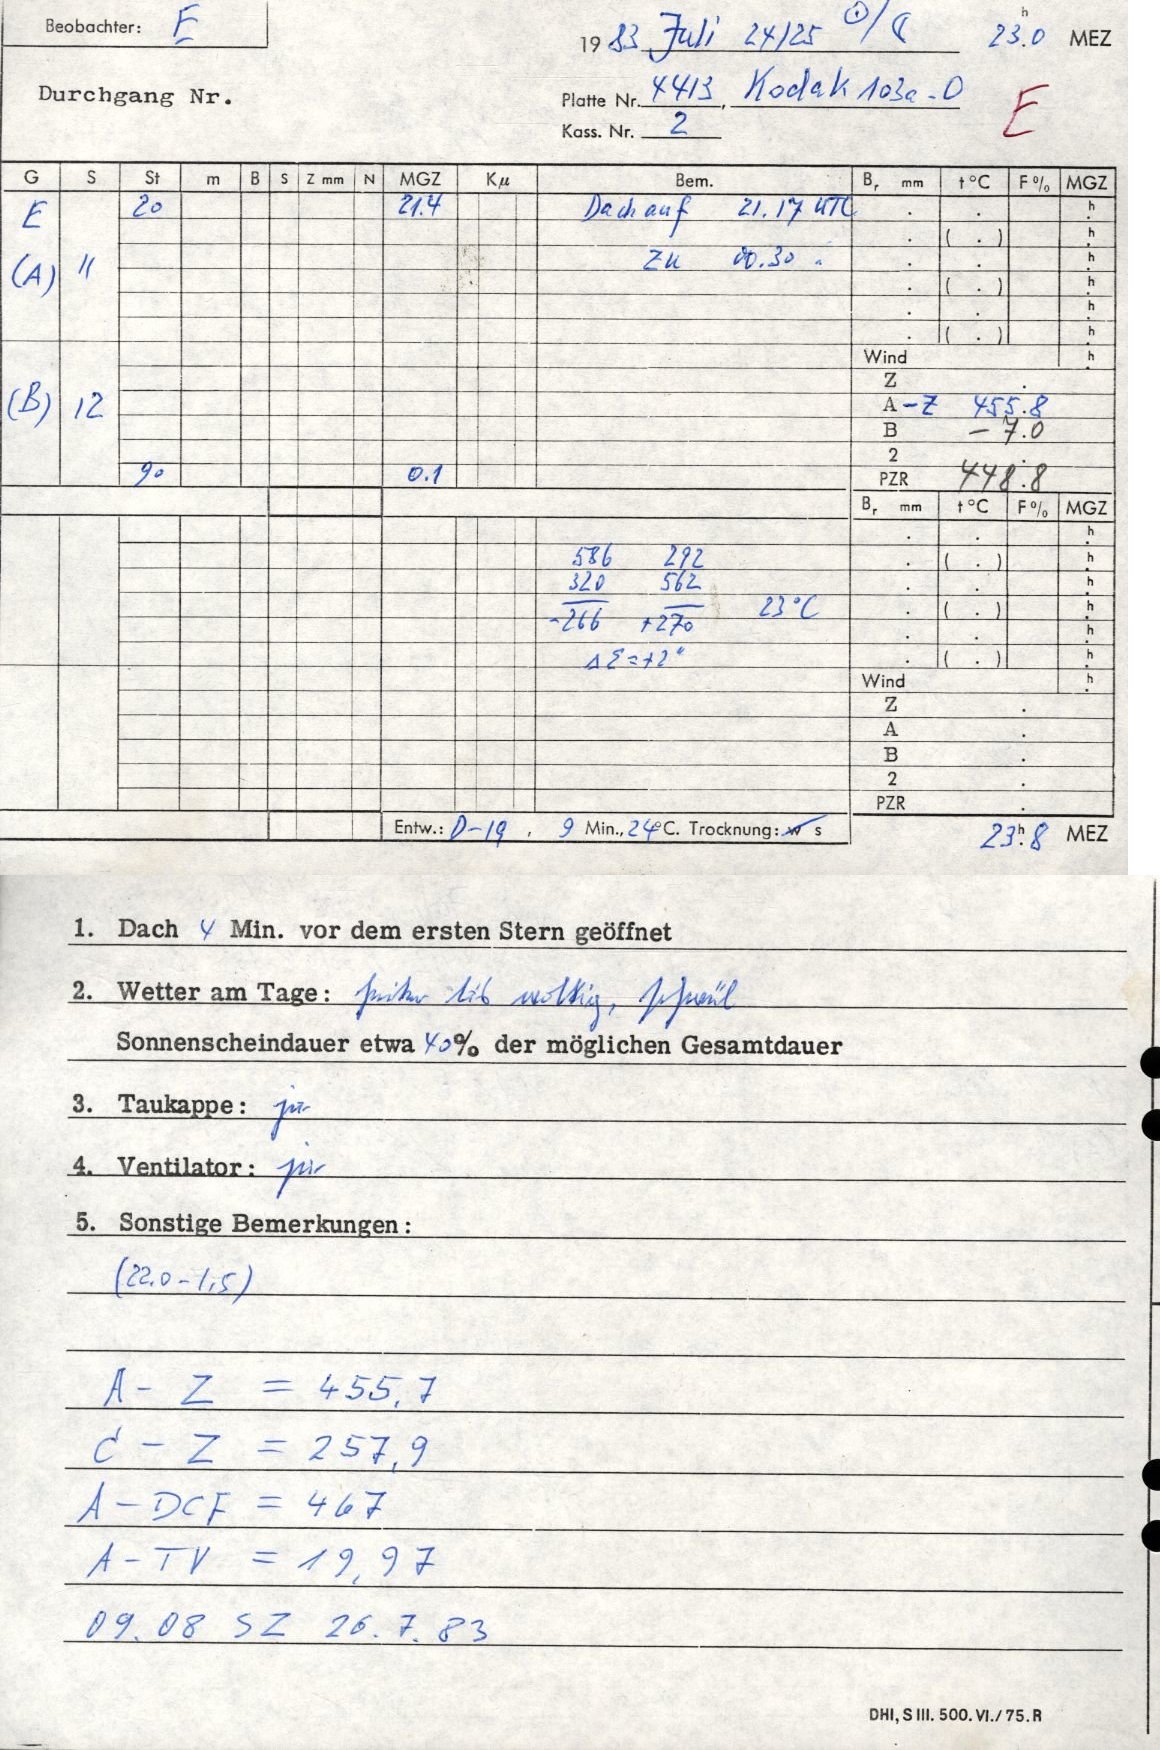 Beobachter: E
19 83 Juli 24/25 23.0 h MEZ
Durchgang Nr.
Platte Nr. 4413, Kodak 103a-O
Kass. Nr. 2
E
G S St m B S Z mm N MGZ Kμ Bem. Br mm t °C F % MGZ
E 20 21.4 Dach auf 21.17 UTC . . h
. ( . ) h
(A) 11 zu 00.30 " . . h
. ( . ) h
. . h
. ( . ) h
Wind h
Z .
(B) 12 A - Z 455.8
B - 7.0
2 .
90 0.1 PZR 448.8
Br mm t °C F % MGZ
. . h
586 292 . ( . ) h
320 562 . . h
-266 +270 23°C . ( . ) h
. . h
Δε=+2" . ( . ) h
Wind h
Z .
A .
B .
2 .
PZR .
Entw.: D-19, 9 Min., 24°C. Trocknung: w s
23.8 h MEZ
1. Dach 4 Min. vor dem ersten Stern geöffnet
2. Wetter am Tage: heiter bis wolkig, schwül
Sonnenscheindauer etwa 40% der möglichen Gesamtdauer
3. Taukappe: ja
4. Ventilator: ja
5. Sonstige Bemerkungen:
(22.0-1.5)
A - Z = 455,7
C - Z = 257,9
A - DCF = 467
A - TV = 19,97
09.08 SZ 26.7.83
DHI, S III. 500. VI./75. R